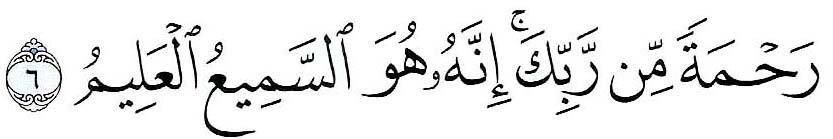 رَحْمَةً مِّن رَّبِّكَ ۚ إِنَّهُۥ هُوَ ٱلسَّمِيعُ ٱلْعَلِيمُ ٦